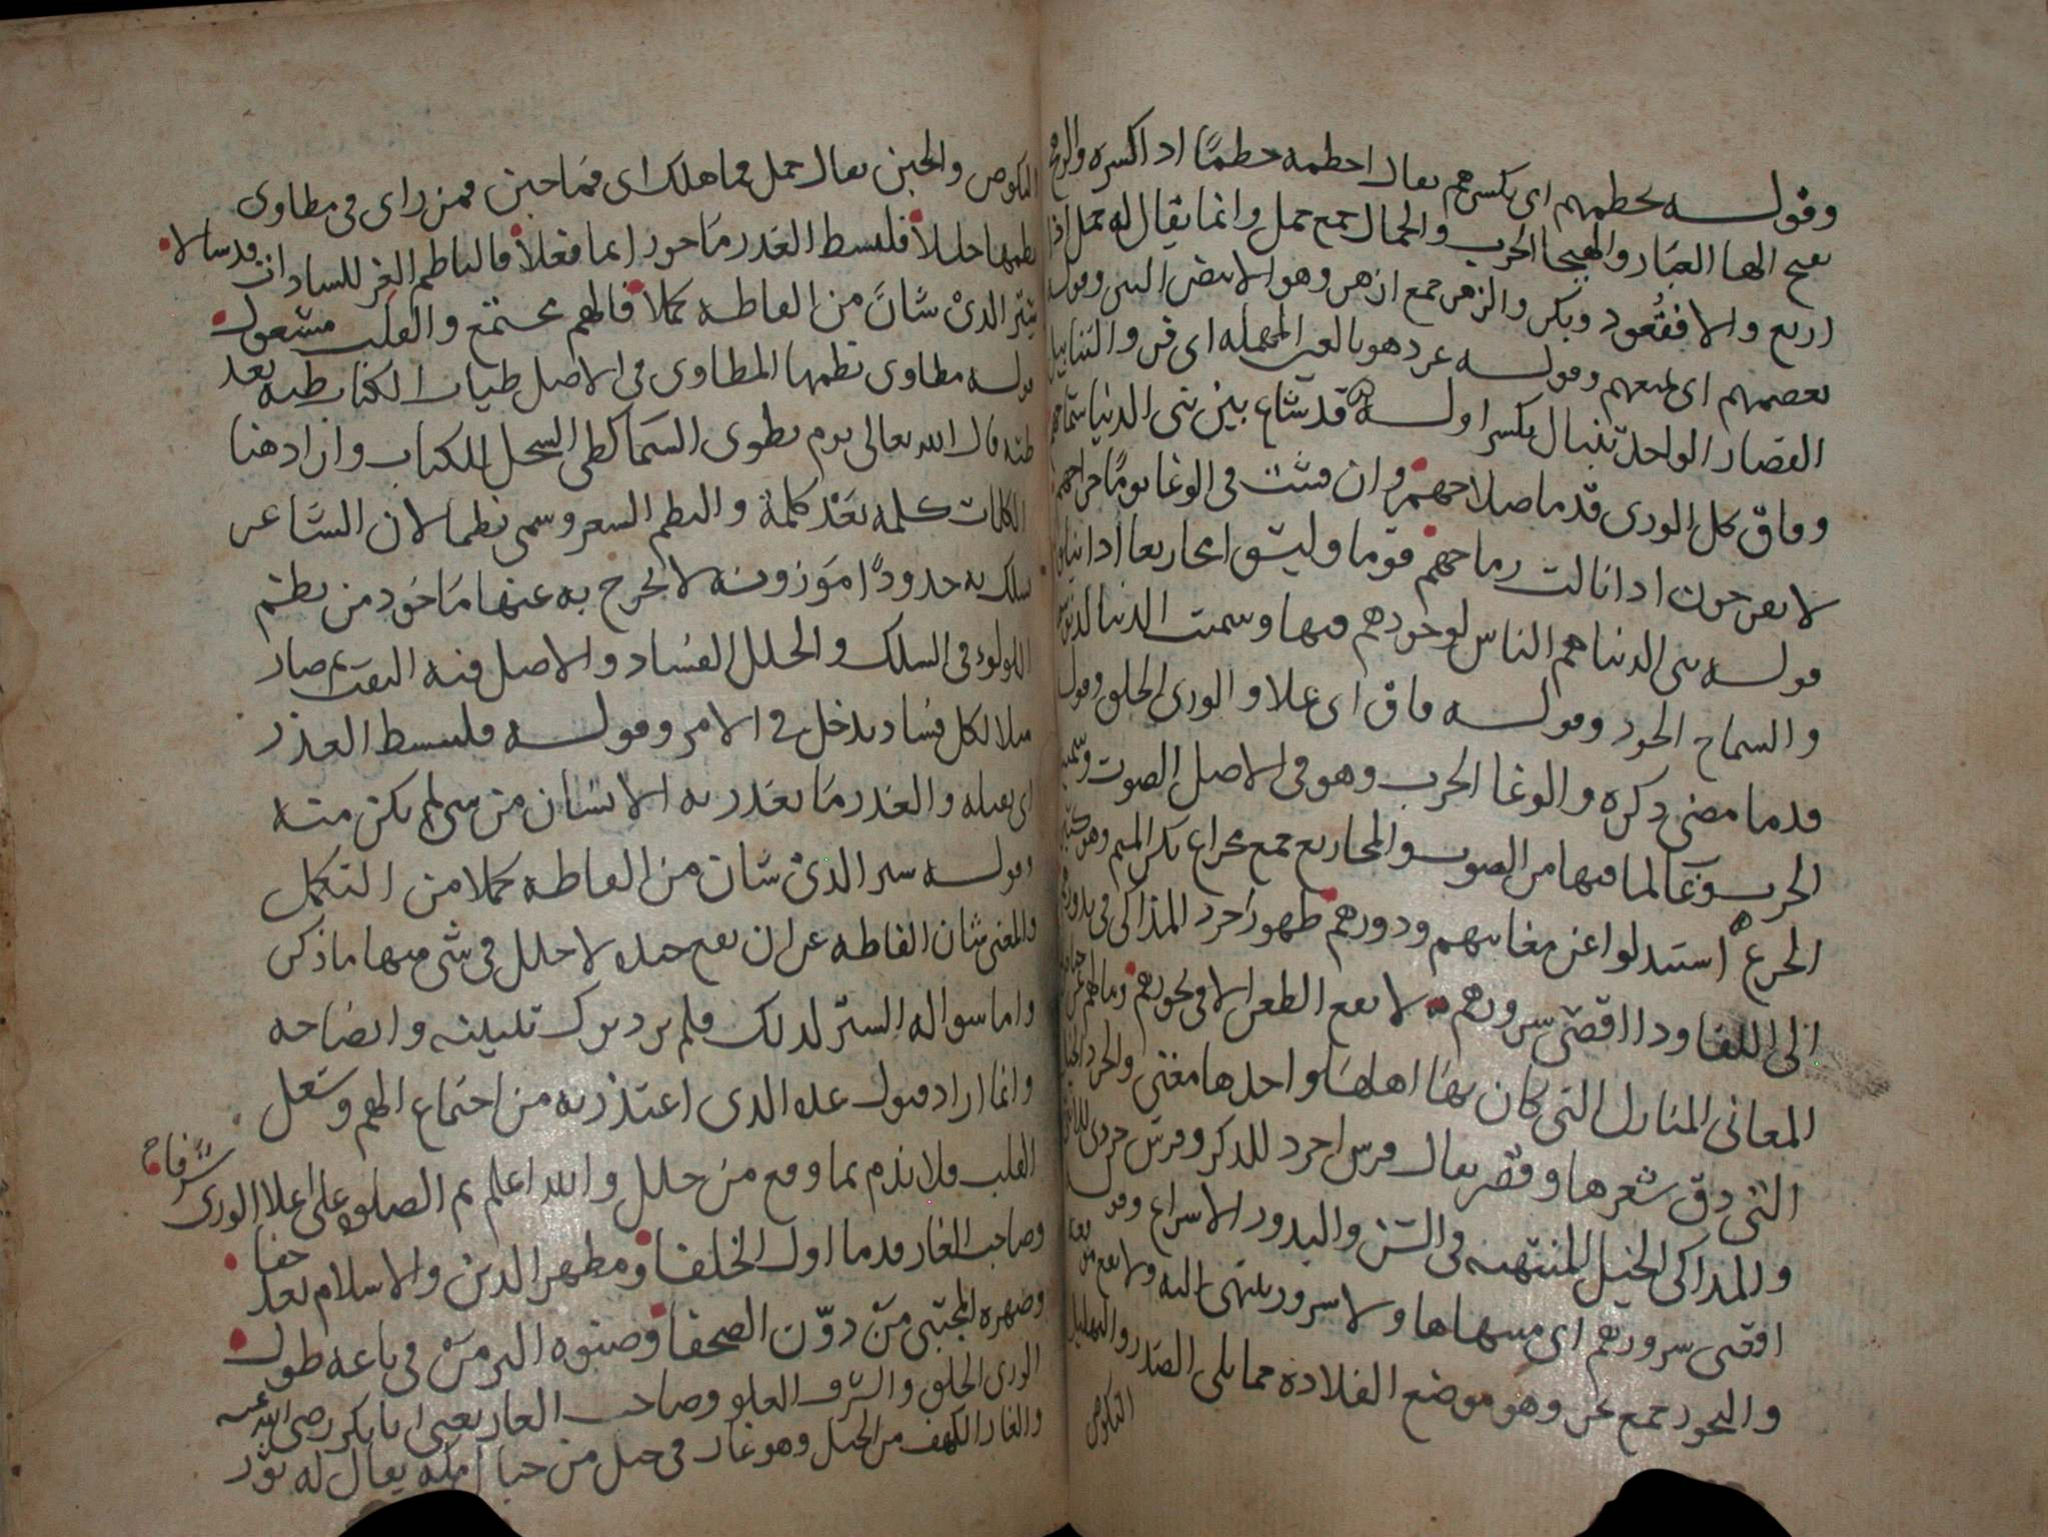 وقوله يحطمهم اى يكسرهم يقال احطمه حطمًا اذا كسره والرهج
بفتح الها الغبار والهيجا الحرب والجمال جمع جمل وانما يقال له جمل اذا
اربع والا فقعود وبكر والزهر جمع ازهر وهو الابيض وقوله
يعصمهم اى يمنعهم وقوله عرد هو بالعين المهملة اى فر والتنابيل
القصار الواحد تنبال بكسر اوله قد شاع بين بنى الدنيا سماحهم
وفاق كل الورى قدما صلاحهم وان فشت فى الوغا يومًا جراحهم
لا يفرحون اذا نالت رماحهم قوما وليسوا مجازيعا اذا نيلوا
قوله بنى الدنيا هم الناس لوجودهم فيها وسميت الدنيا
والسماح الجود وقوله فاق اى علا والورى الخلق وقوله
قدما مضى ذكره والوغا الحرب وهو فى الاصل الصوت وسميت
الحرب وغا لما فيها من الصوت والمجازيع جمع مجزاع بكسر الميم وهو كثير
الجزع استبدلوا عن مغانيهم ودورهم ظهور اجرد المذاكى فى بدورهم
الى اللقا وذا اقصى سرورهم لا يقع الطعن الا فى نحورهم وما لهم عن حياض
المغانى المنازل التى كان بها اهلها واحدها مغنى والجرد الخيل
التى دق شعرها وقصر يقال فرس اجرد للذكر وفرس جردى للانثى
والمذاكى الخيل المنتهية فى السن والبدور الاسراع وقوله
اقصى سرورهم اى منتهاها ولا سرور ينتهى اليه ولا يقع
والنحور جمع نحر وهو موضع القلادة مما يلى الصدر والتهليل
النكوص
النكوص والجبن يقال حمل فما هلك اى فما جبن فمن راى فى مطاوى
نظمها خللاً فليبسط العذر مما حوز انما فعلاً فالناظم الغر للسادات قد سالا
ستر الذى شان من الفاظه كملا فالهم مجتمع والقلب مشغول
قوله مطاوى نظمها المطاوى فى الاصل طيات الكتاب طيه بعد
طيه قال الله تعالى يوم نطوى السما كطى السجل للكتاب واراد هنا
الكلمات كلمه بعد كلمة والنظم الشعر وسمى نظما لان الشاعر
سلك به حدودًا موزونه لا يخرج به عنها ماخوذ من نظم
اللولوء فى السلك والخلل الفساد والاصل فيه الثقب ثم صار
مثلا لكل فساد يدخل فى الامر وقوله فليبسط العذر
اى يقبله والعذر ما يعتذر به الانسان من شى لم يكن منه
وقوله ستر الذى شان من الفاظه كملا من التكمل
والمعنى شان الفاظه عن ان يقع خلل فى شى منها ما ذكر
واما سواله الستر لذلك فلم يرد ترك تبيينه وايضاحه
وانما اراد قبول عذره الذى اعتذر به من اجتماع الهم وشغل
القلب فلا يذم بما وقع من خلل والله اعلم ثم الصلوه على اعلا الورى شرفا
وصاحب الغار قدما اول الخلفا ومظهر الدين والاسلام بعد خفا
وصهره المجتبى من دوّن الصحفا وصنوه البر من فى باعه طول
الورى الخلق والشرف العلو وصاحب الغار يعنى ابا بكر رضى الله عنه
والغار الكهف من الجبل وهو غار فى جبل من جبال مكه يقال له ثور